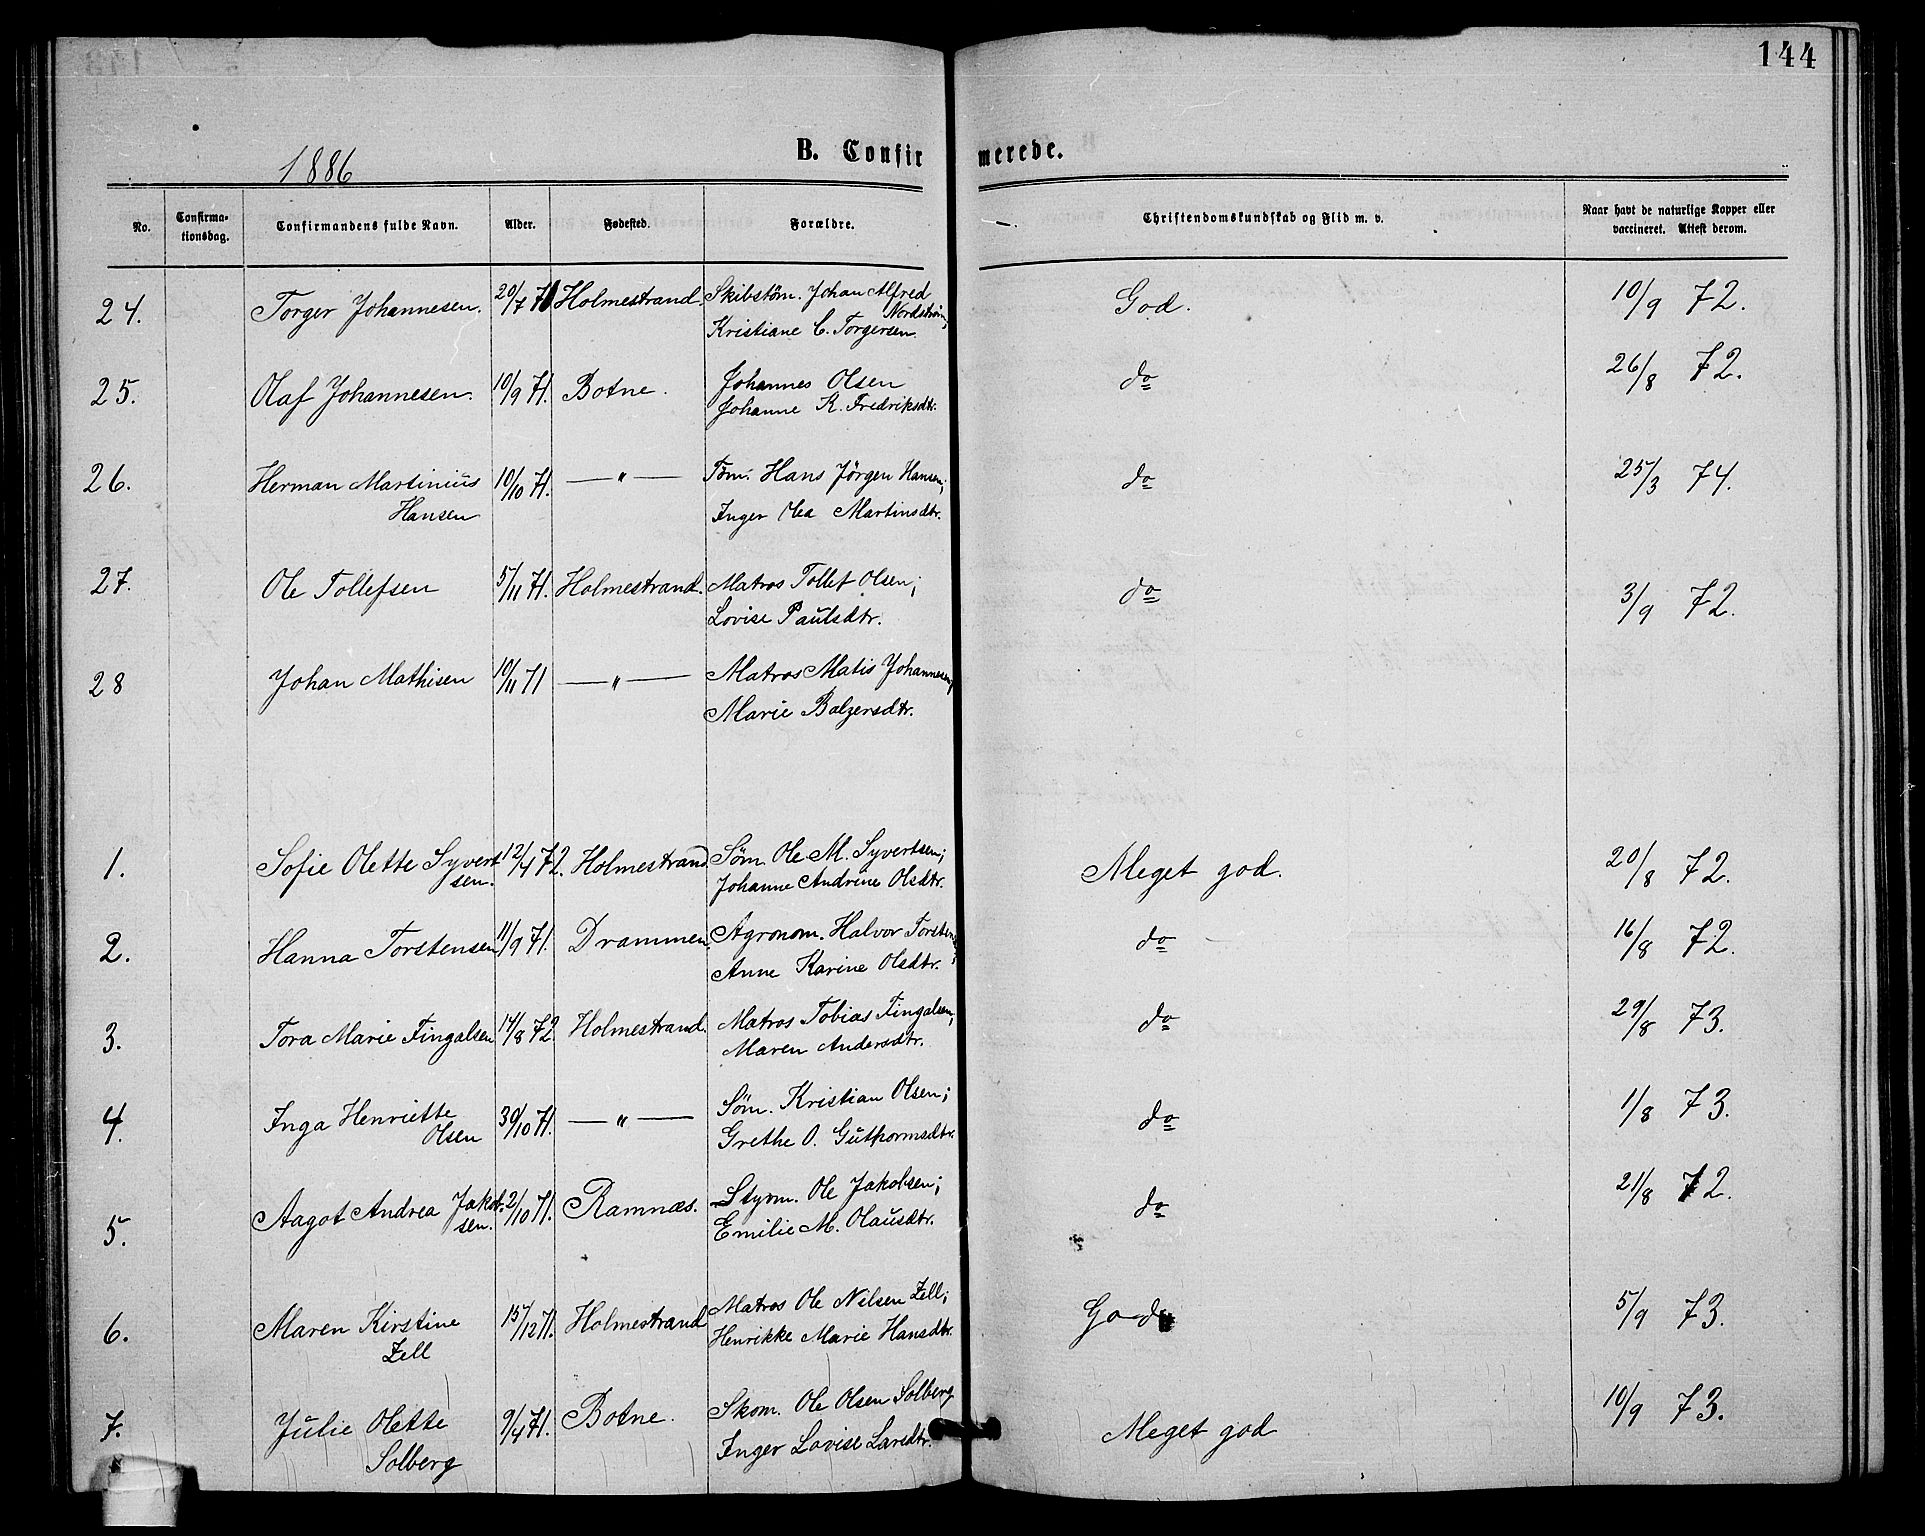 144
1886
B. Confirmerede.
No. Confirma-tionsdag. Confirmandens fulde Navn. Alder. Fødested. Forældre. Christendomskundskab og Flid m. v. Naar havt de naturlige Kopper eller vaccineret. Attest derom.
24. Torger Johannesen. 20/7 71 Holmestrand. Skibstøm. Johan Alfred Nordstrøm; God. 10/9 72.
Kristiane C. Torgersen.
25. Olaf Johannesen. 10/9 71. Botne. Johannes Olsen do 26/8 72.
Johanne K. Fredriksdtr.
26. Herman Martinius 10/10 71. —„— Tøm. Hans Jørgen Hansen; do 25/3 74.
Hansen Inger Olea Martinsdtr.
27. Ole Tollefsen 5/11 71. Holmestrand. Matros Tollef Olsen; do 3/9 72.
Lovise Paulsdtr.
28 Johan Mathisen 10/11 71 —„— Matros Matis Johannesen;
Marie Balzersdtr.
1. Sofie Olette Syvert 12/4 72. Holmestrand Søm. Ole M. Syvertsen; Meget god. 20/8 72.
sen. Johanne Andrine Olsdtr.
2. Hanna Torstensen 11/9 71. Drammen. Agronom. Halvor Torstens; do 16/8 72.
Anne Karine Olsdtr.
3. Tora Marie Fingalsen 14/8 72. Holmestrand. Matros Tobias Fingalsen; do 29/8 73.
Maren Andersdtr.
4. Inga Henriette 30/10 71. —„— Søm. Kristian Olsen; do 1/8 73.
Olsen Grethe O. Guthormsdtr.
5. Aagot Andrea Jakob- 2/10 71. Ramnæs. Styrm. Ole Jakobsen; do 21/8 72.
sen. Emilie M. Olausdtr.
6. Maren Kirstine 15/12 71. Holmestrand Matros Ole Nilsen Zell; God 5/9 73.
Zell Henrikke Marie Hansdtr.
7. Julie Olette 9/4 71. Botne. Skom. Ole Olsen Solberg Meget god 10/9 73.
Solberg Inger Lovise Larsdtr.